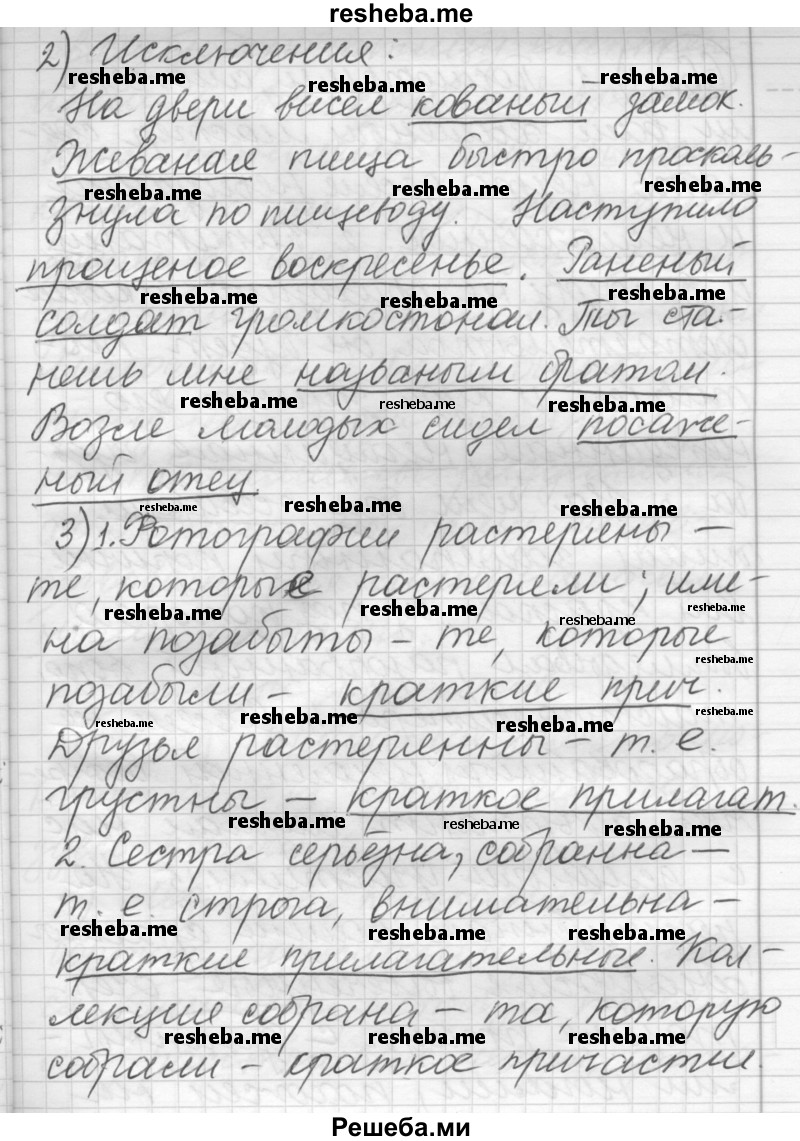 resheba.me
2) Исключения:
resheba.me resheba.me resheba.me
На двери висел кованый замок.
Жеваная пища быстро проскаль-
resheba.me resheba.me resheba.me
знула по пищеводу. Наступило
прощеное воскресенье. Раненый
resheba.me resheba.me resheba.me
солдат громко стонал. Ты ста-
нешь мне названым братом.
resheba.me resheba.me resheba.me
Возле молодых сидел посаже-
ный отец.
resheba.me resheba.me resheba.me
3) 1. Фотографии растеряны –
те, которые растеряли; име-
resheba.me resheba.me resheba.me resheba.me
на позабыты – те, которые
resheba.me
позабыли – краткие прич.
resheba.me resheba.me resheba.me resheba.me
Друзья растерянны – т. е.
грустны – краткое прилагат.
resheba.me resheba.me resheba.me
2. Сестра серьёзна, собранна –
т. е. строга, внимательна –
resheba.me resheba.me resheba.me
краткие прилагательные. Кол-
лекция собрана – та, которую
resheba.me resheba.me resheba.me
собрали – краткое причастие.
Решеба.ми